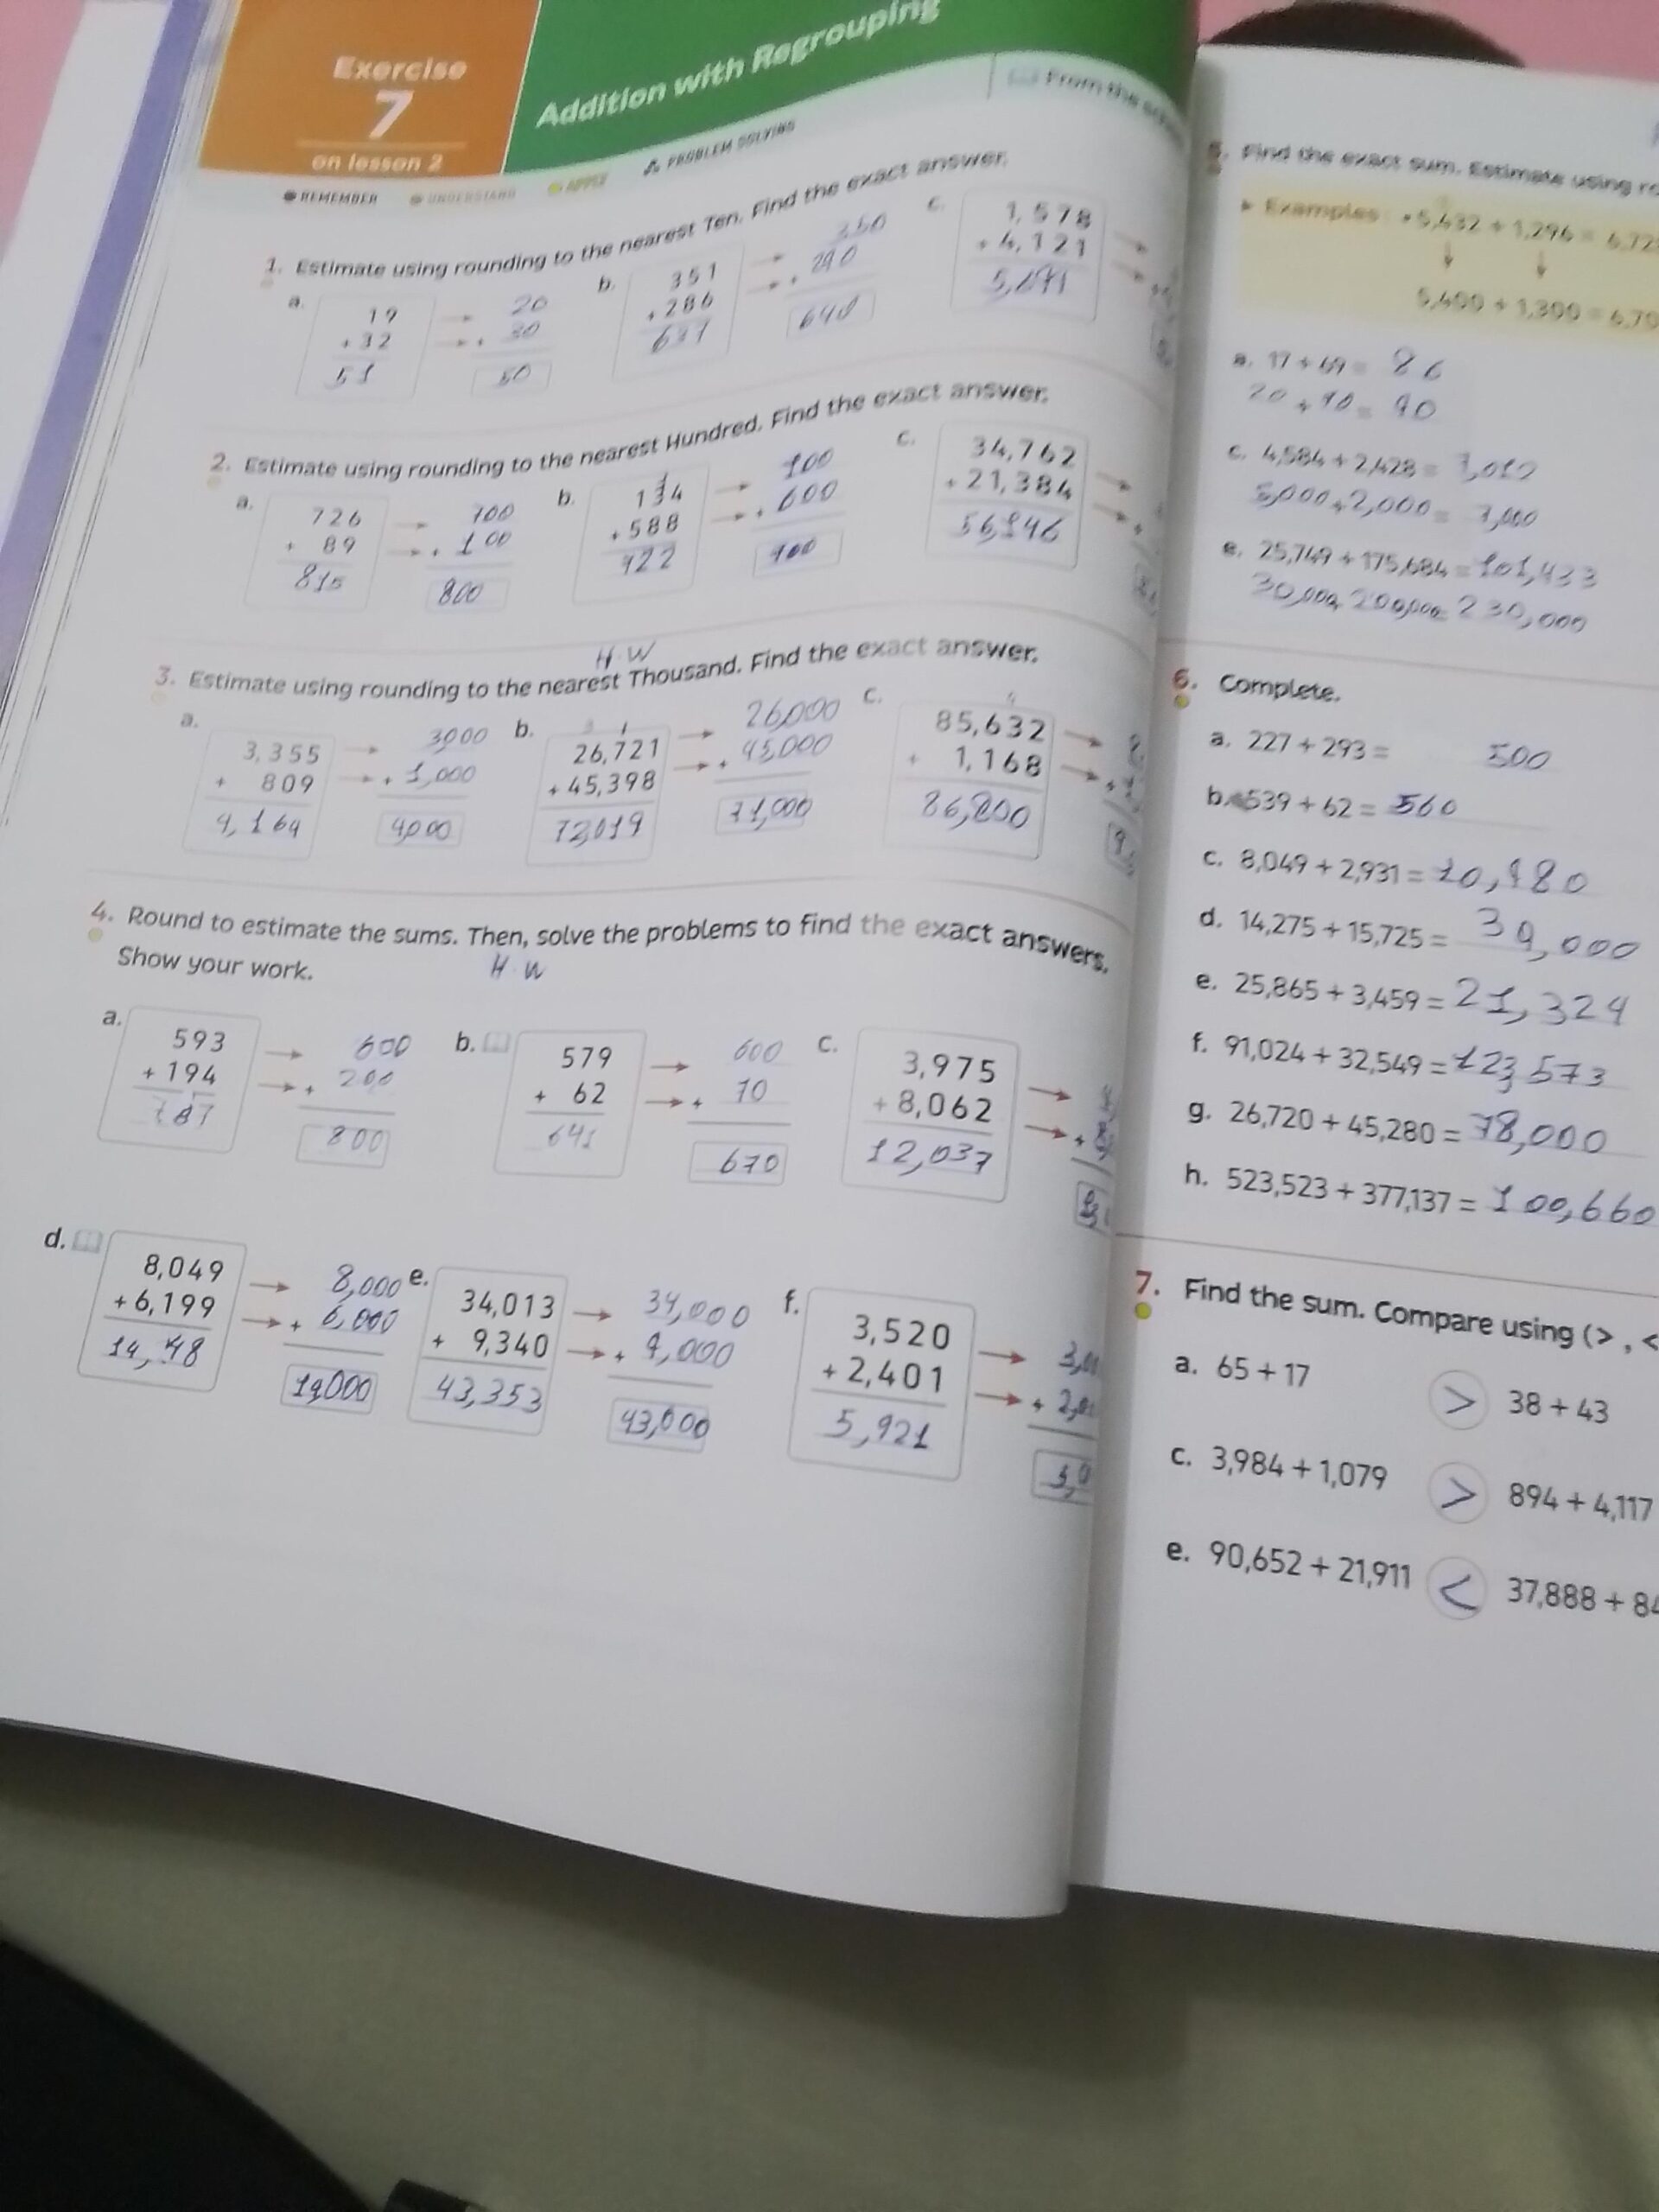 Exercise
7
on lesson 2
Addition with Regrouping
From the
REMEMBER UNDERSTAND APPLY PROBLEM SOLVING
1. Estimate using rounding to the nearest Ten. Find the exact answer.
a. 19 + 32
51
20 + 30
50
b. 351 + 286
637
350 + 290
640
c. 1,578 + 4,121
2. Estimate using rounding to the nearest Hundred. Find the exact answer.
a. 726 + 89
815
700 + 100
800
b. 134 + 588
100 + 600
c. 34,762 + 21,384
3. Estimate using rounding to the nearest Thousand. Find the exact answer.
H.W
a. 3,355 + 809
4,164
3000 + 1,000
4,000
b. 26,721 + 45,398
26,000 + 45,000
71,000
c. 85,632 + 1,168
86,800
4. Round to estimate the sums. Then, solve the problems to find the exact answers.
Show your work.
H.W
a. 593 + 194
787
600 + 200
800
b. 579 + 62
641
600 + 70
670
c. 3,975 + 8,062
12,037
d. 8,049 + 6,199
8,000 + 6,000
14,000
e. 34,013 + 9,340
43,353
34,000 + 9,000
43,000
f. 3,520 + 2,401
5,921
5. Find the exact sum. Estimate using
Examples: • 5,432 + 1,296 =
5,400 + 1,300 =
a. 17 + 69 = 86
c. 4,584 + 2,428 = 7,012
5,000 + 2,000 = 7,000
e. 25,749 + 175,684 =
30,000 + 200,000 = 230,000
6. Complete.
a. 227 + 293 = 500
b. 539 + 62 = 560
c. 8,049 + 2,931 = 10,980
d. 14,275 + 15,725 = 39,000
e. 25,865 + 3,459 = 21,324
f. 91,024 + 32,549 = 123,573
g. 26,720 + 45,280 = 78,000
h. 523,523 + 377,137 = 100,660
7. Find the sum. Compare using (> , <
a. 65 + 17 > 38 + 43
c. 3,984 + 1,079 > 894 + 4,117
e. 90,652 + 21,911 < 37,888 +